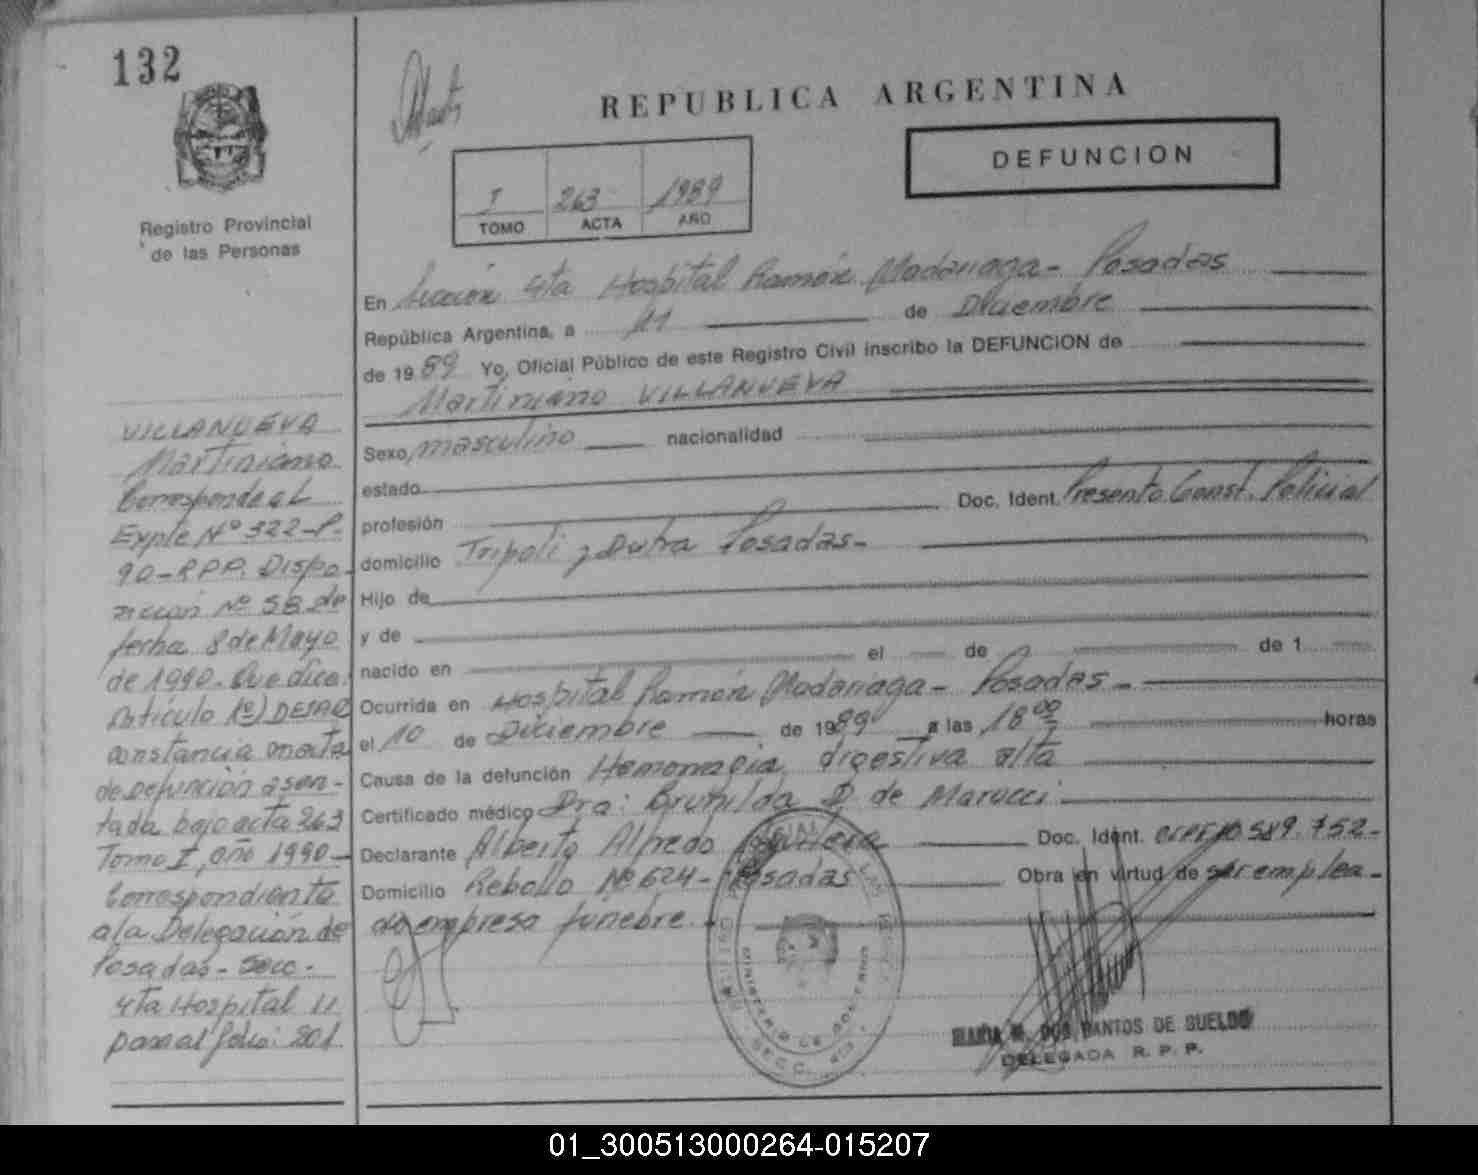 132
REPUBLICA ARGENTINA
DEFUNCION
I 263 1989
TOMO ACTA AÑO
Registro Provincial
de las Personas
En Sección 4ta Hospital Ramón Madariaga - Posadas
República Argentina, a 11 de Diciembre
de 1989 Yo, Oficial Público de este Registro Civil inscribo la DEFUNCION de
Martiniano VILLANUEVA
Sexo masculino nacionalidad
estado
profesión Doc. Ident. Presento Const. Policial
domicilio Tripoli y Dutra Posadas-
Hijo de
y de
nacido en el de de 1
Ocurrida en Hospital Ramón Madariaga - Posadas -
el 10 de Diciembre de 1989 a las 18 00 horas
Causa de la defunción Hemorragia digestiva alta
Certificado médico Dra: Brunilda D. de Marucci
Declarante Alberto Alfredo Doc. Ident. 589.752-
Domicilio Rebollo Nº 624 - Posadas Obra en virtud de ser emplea-
do empresa funebre.
VILLANUEVA
Martiniano
Corresponde al
Expte Nº 322-P-
90-RPP. Dispo-
sición Nº 58 de
fecha 8 de Mayo
de 1990. Que dice:
Artículo 1º)
constancia
de Defunción asen-
tada bajo acta 263
Tomo I, año 1990-
Correspondiente
a la Delegación de
Posadas - Secc.
4ta Hospital
pasa al folio: 201.
MINISTERIO DE GOBIERNO
MARIA M. DOS SANTOS DE SUELDO
DELEGADA R. P. P.
01_300513000264-015207